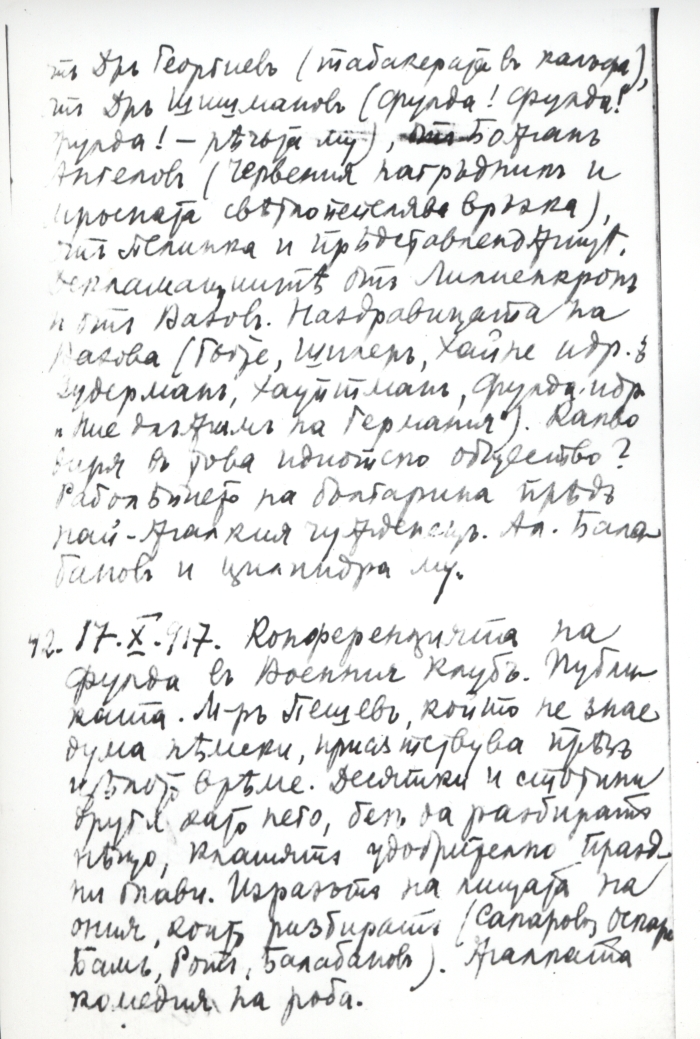 отъ Дръ Георгиевъ (табакерата въ калъфа),
отъ Дръ Шишмановъ (Фулда! Фулда!
Фулда! — рѣчьта му), отъ Божанъ
Ангеловъ (червения нагръдникъ и
проската свѣтлопепелява връзка),
отъ Пепинка и
Декламациитѣ отъ Лилиенкронъ
и отъ Вазовъ. Наздравицата на
Вазова (Гьоте, Шилеръ, Хайне и др. з
Зудерманъ, Хауптманъ, Фулда и др.
„Ние дължимъ на Германия“). Какво
диря въ това идиотско общество?
Раболѣпието на българина прѣдъ
най-жалкия чужденецъ. Ал. Бала-
бановъ и цилиндра му.
42. 17.X.917. Конференцията на
Фулда въ Военния клубъ. Публи-
ката. М-ръ Пешевъ, който не знае
дума нѣмски, присѫтствува прѣзъ
цѣлото врѣме. Десятки и стотини
други като него, безъ да разбиратъ
нѣщо, клатятъ удобрително празд-
ни глави. Изразътъ на лицата на
ония, които разбиратъ (Сапаровъ, Оскаръ
Бамъ, Ротъ, Балабановъ). Жалката
комедия на роба.